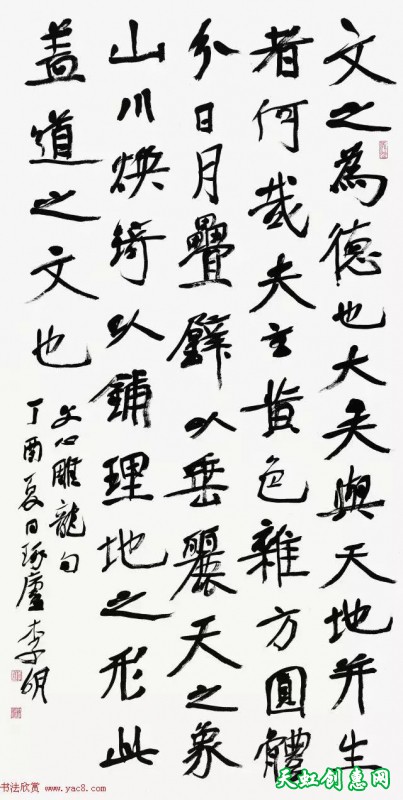 文之為德也大矣與天地并生
者何哉夫玄黄色雜方圓體
分日月疊璧以垂麗天之象
山川煥綺以鋪理地之形此
盖道之文也
文心雕龍句
丁酉夏日琢廬李明
书法欣赏 www.yac8.com
天虹创惠网